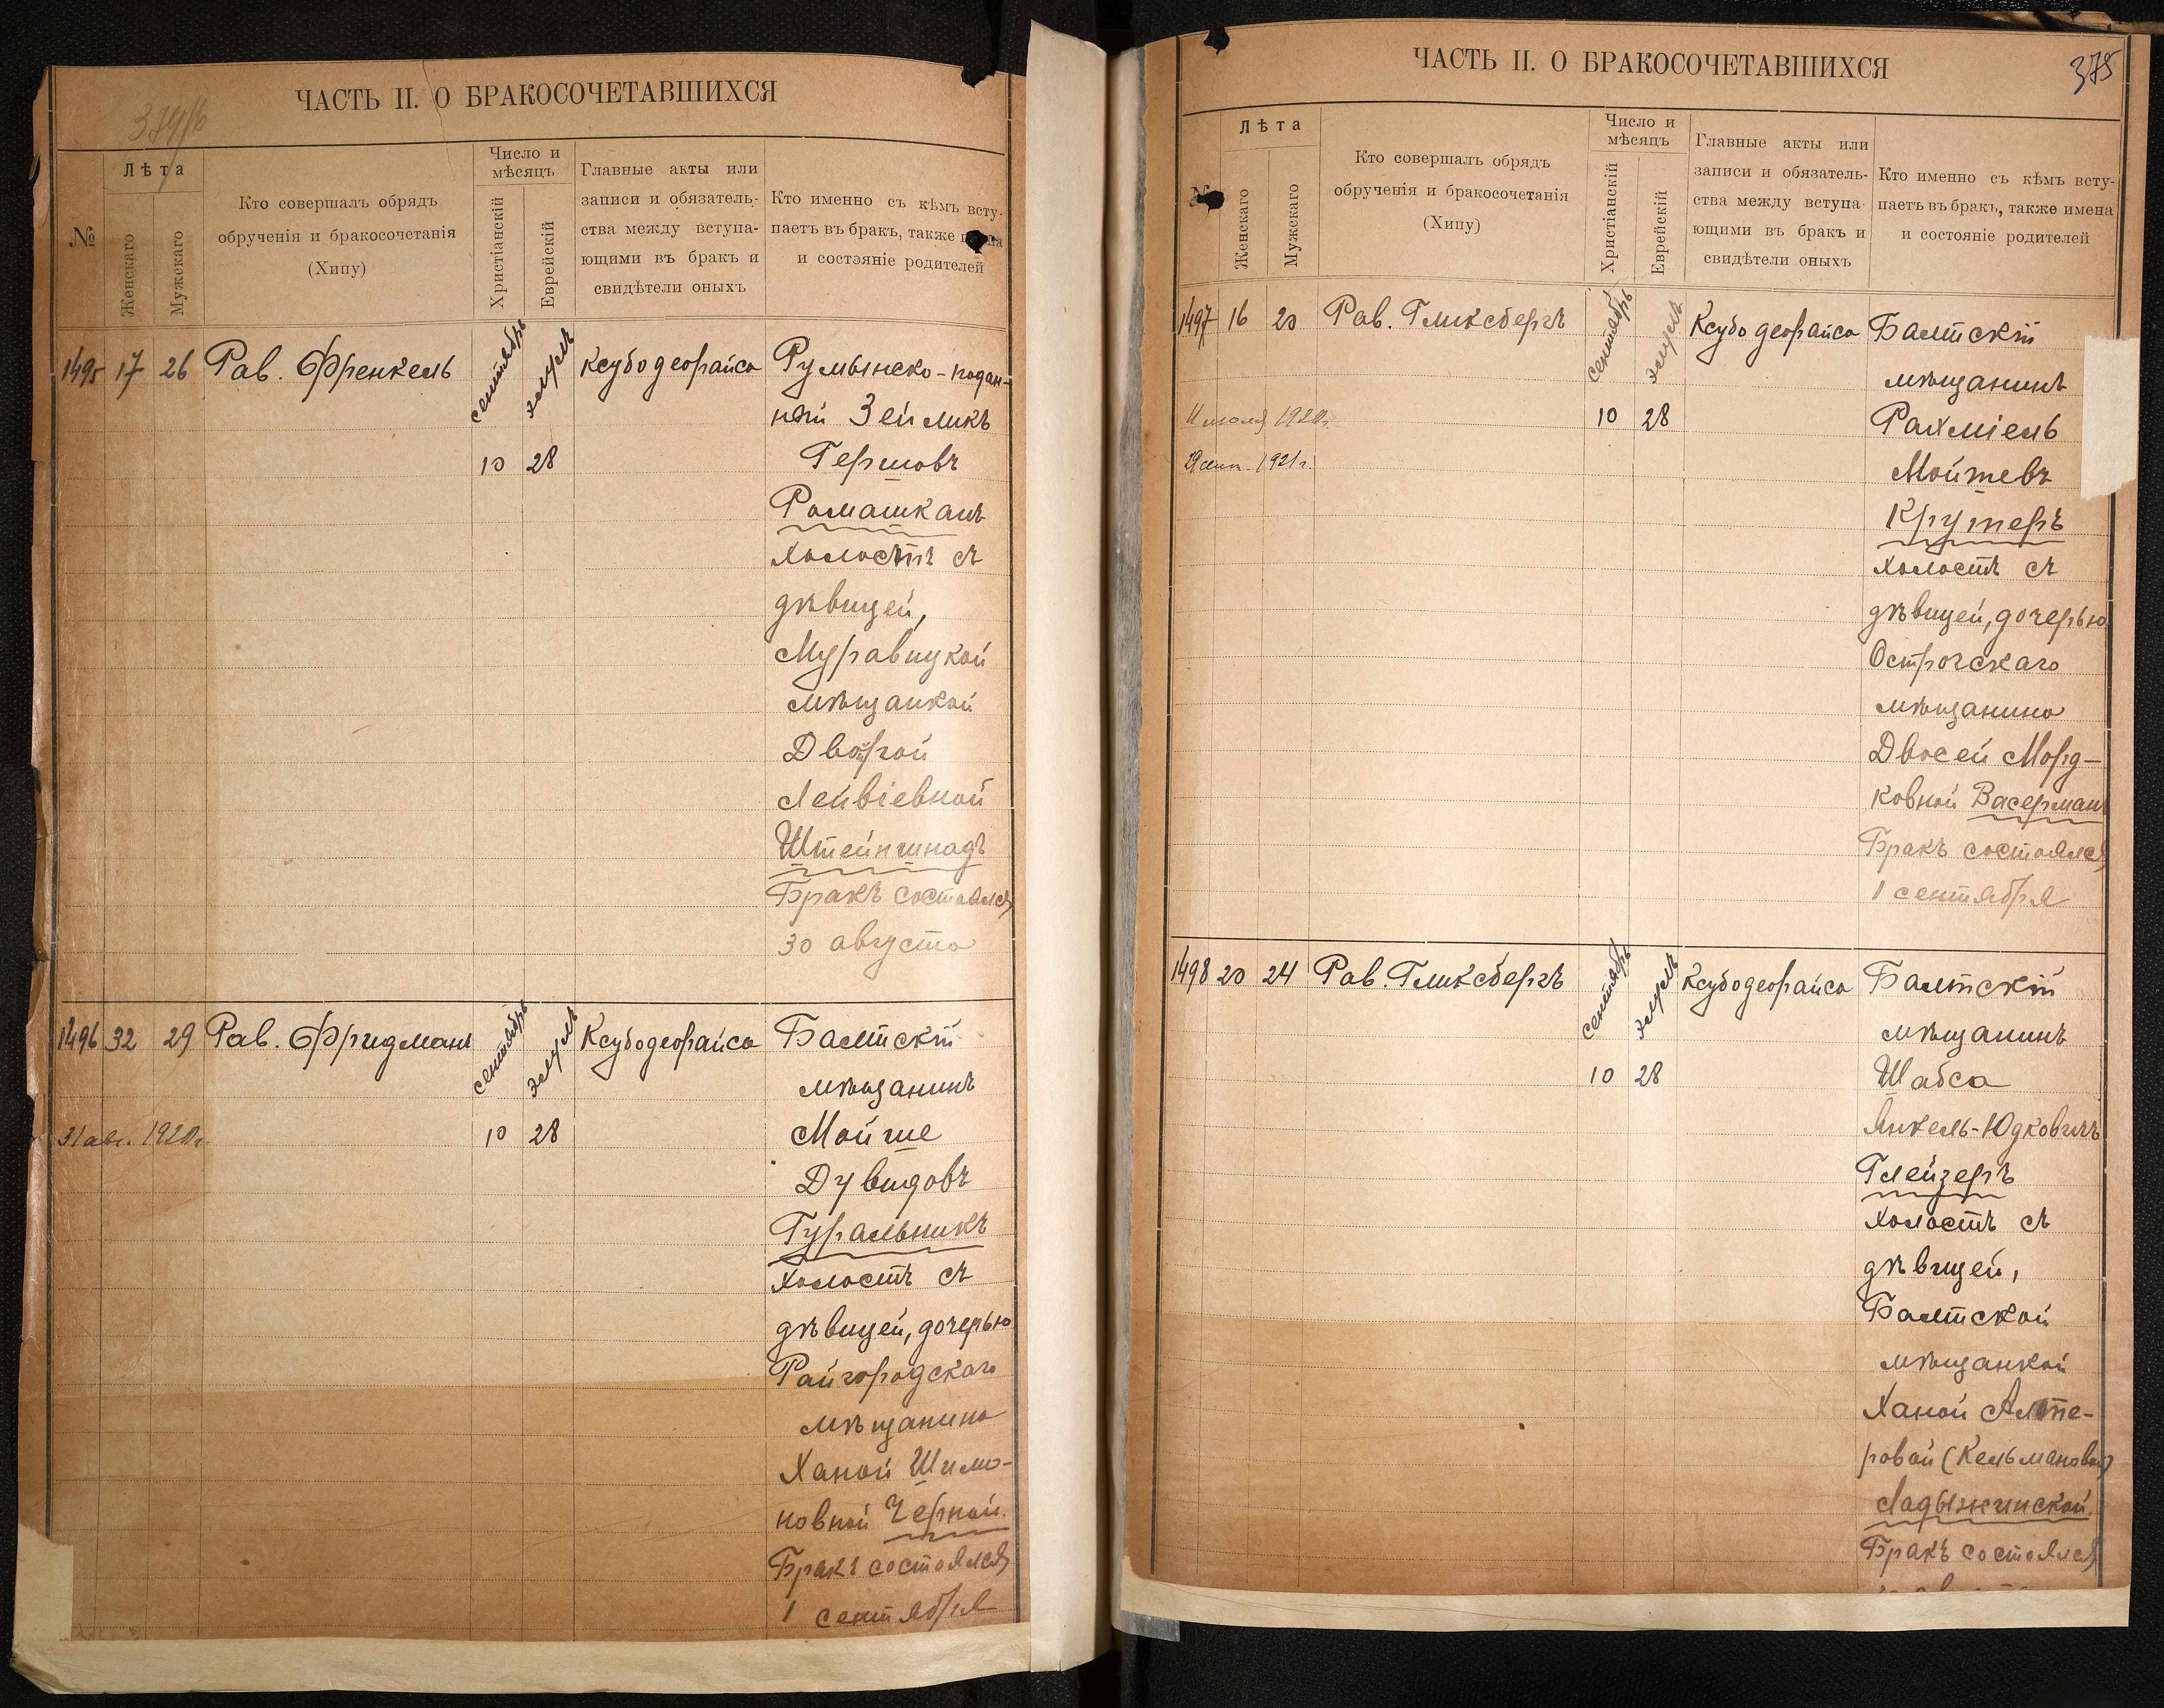 ЧАСТЬ II. О БРАКОСОЧЕТАВШИХСЯ
№
Лѣта
Женскаго
Мужскаго
Кто совершалъ обрядъ
обрученія и бракосочетанія
(Хипу)
Число и
мѣсяцъ
Христіанскій
Еврейскій
Главные акты или
записи и обязатель-
ства между вступа-
ющими въ бракъ и
свидѣтели оныхъ
Кто именно съ кѣмъ всту-
паетъ въ бракъ, также
и состояніе родителей
1495 17 26 Рав. Френкель сентябрь элуль Ксубодеорайса Румынско-поддан-
ный Зейликъ
10 28 Гершовъ
Ромашканъ
холостъ съ
дѣвицей,
Муравицкой
мѣщанкой
Двойрой
Лейвіевной
Штейншнадъ
Бракъ состоялся
30 августа
1496 32 29 Рав. Фридманъ сентябрь элуль Ксубодеорайса Балтскій
мѣщанинъ
31 авг. 1920г. 10 28 Мойше
Дувидовъ
Гуральникъ
холостъ съ
дѣвицей, дочерью
Райгородскаго
мѣщанина
Ханой Шимо-
новной Черной.
Бракъ состоялся
1 сентября
ЧАСТЬ II. О БРАКОСОЧЕТАВШИХСЯ
375
№
Лѣта
Женскаго
Мужскаго
Кто совершалъ обрядъ
обрученія и бракосочетанія
(Хипу)
Число и
мѣсяцъ
Христіанскій
Еврейскій
Главные акты или
записи и обязатель-
ства между вступа-
ющими въ бракъ и
свидѣтели оныхъ
Кто именно съ кѣмъ всту-
паетъ въ бракъ, также имена
и состояніе родителей
1497 16 20 Рав. Гликсбергъ сентябрь элуль Ксубодеорайса Балтскій
мѣщанинъ
1920г. 10 28 Рахміель
1921г. Мойшевъ
Крутеръ
холостъ съ
дѣвицей, дочерью
Острогскаго
мѣщанина
Двосей Морд-
ковной Васерманъ
Бракъ состоялся
1 сентября
1498 20 24 Рав. Гликсбергъ сентябрь элуль Ксубодеорайса Балтскій
мѣщанинъ
10 28 Шабса
Янкель-Юдковичъ
Глейзеръ
холостъ съ
дѣвицей,
Балтской
мѣщанкой
Ханой Алте-
ровой (Кельмановой)
Ладыжинской.
Бракъ состоялся